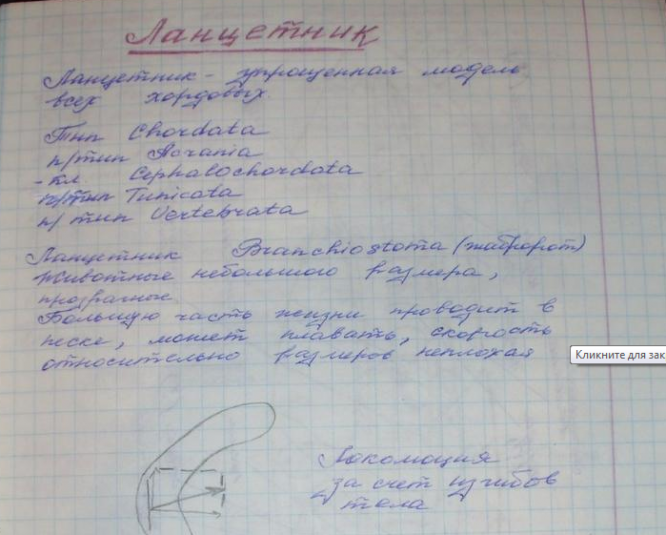 Ланцетник
Ланцетник - упрощенная модель
всех хордовых.
Тип Chordata
п/тип Acrania
- кл Cephalochordata
п/тип Tunicata
п/тип Vertebrata
Ланцетник Branchiostoma (жабророт)
Животные небольшого размера,
прозрачные
Большую часть жизни проводит в
песке, может плавать, скорость
относительно размеров неплохая
Кликните для зак
Локомоция
за счет изгибов
тела